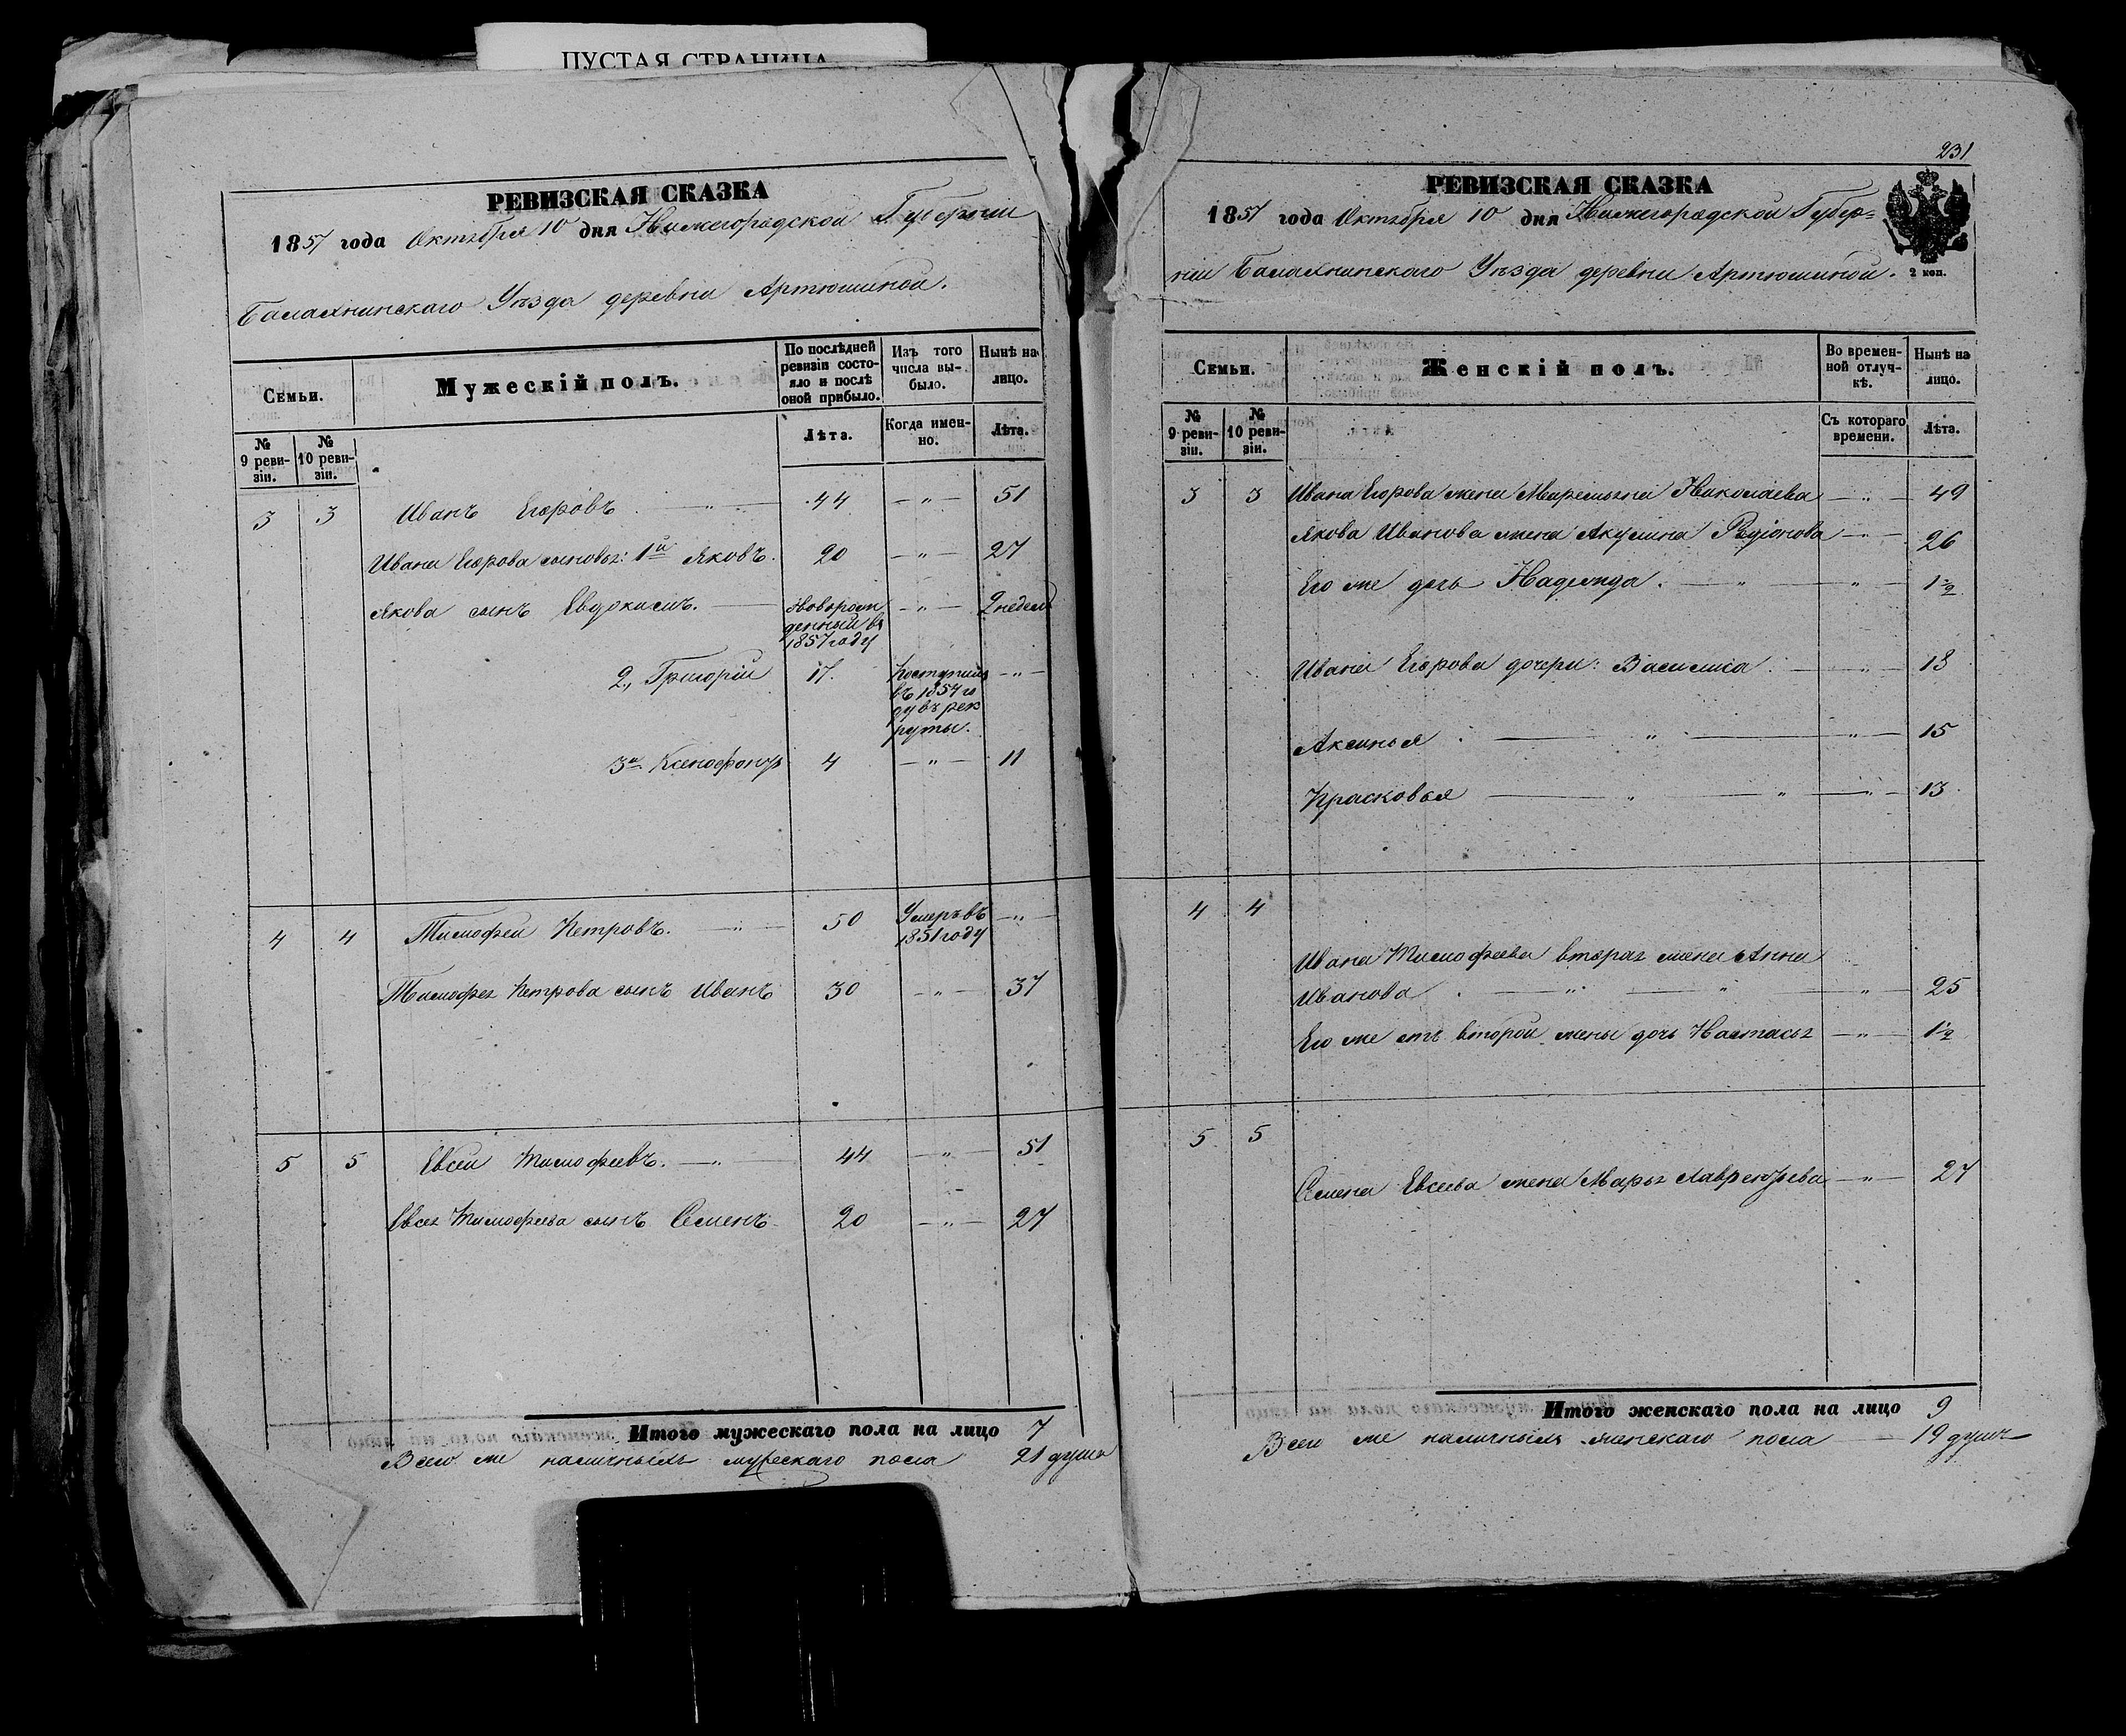 ПУСТАЯ СТРАНИЦА
РЕВИЗСКАЯ СКАЗКА
1857 года Октября 10 дня Нижегородской Губерніи
Балахнинскаго Уѣзда деревни Артюшиной.
Семьи.
Мужескій полъ.
По послѣдней ревизіи состояло и послѣ оной прибыло.
Изъ того числа выбыло.
Нынѣ на лицо.
№ 9 ревизіи.
№ 10 ревизіи.
Лѣта.
Когда именно.
Лѣта.
3 3 Иванъ Егоровъ. — " — 44 — " — 51
Ивана Егорова сыновья: 1й Яковъ. 20 — " — 27
Якова сынъ Евдокимъ. — Новорож
денный въ
1857 году — " — 2 недели
2, Григорій 17. Поступилъ
въ 1854 го
ду въ рек
руты. — " —
3й Ксенофонтъ 4 — " — 11
4 4 Тимофей Петровъ. — " — 50 Умеръ въ
1851 году — " —
Тимофея Петрова сынъ Иванъ 30 — " — 37
5 5 Евсей Тимофеевъ. — " — 44 — " — 51
Евсея Тимофеева сынъ Семенъ 20 — " — 27
Итого мужескаго пола на лицо 7
Всего же наличныхъ мужескаго пола 21 душа
231
РЕВИЗСКАЯ СКАЗКА
1857 года Октября 10 дня Нижегородской Губер=
ніи Балахнинскаго Уѣзда деревни Артюшиной.
2 коп.
Семьи.
Женскій полъ.
Во временной отлучкѣ.
Нынѣ на лицо.
№ 9 ревизіи.
№ 10 ревизіи.
Съ котораго времени.
Лѣта.
3 3 Ивана Егорова жена Маремьяна Николаева — " — 49
Якова Иванова жена Акулина Родіонова — " — 26
Его же дочь Надежда. — " — " — 1½
Ивана Егорова дочери: Василиса — " — 18
Аксинья — " — " — 15
Прасковья — " — " — " — 13
4 4
Ивана Тимофеева вторая жена Анна
Иванова — " — " — " — 25
Его же отъ второй жены дочь Настасья — " — 1½
5 5
Семена Евсеева жена Марья Лаврентьева — " — 27
Итого женскаго пола на лицо 9
Всего же наличныхъ женскаго пола — 19 душъ